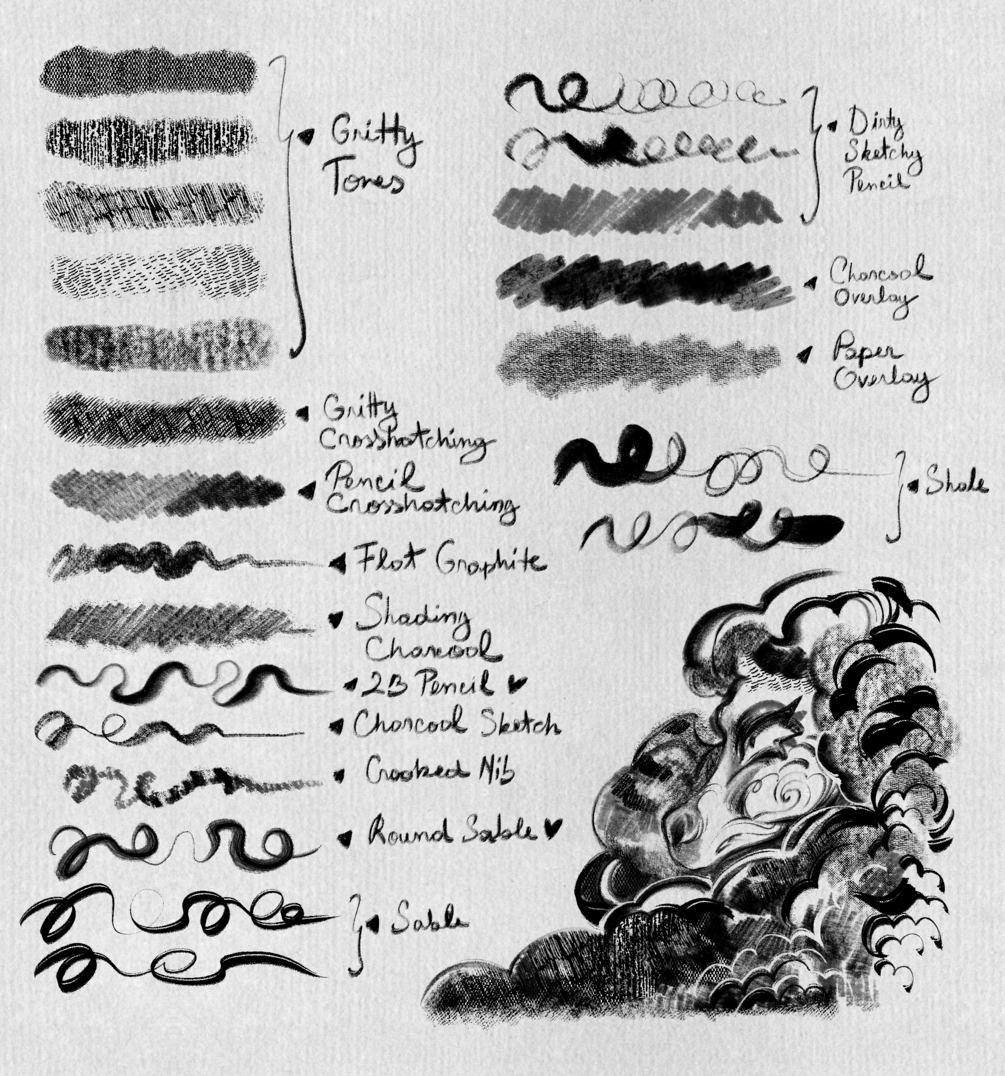 Gritty
Tones
Gritty
Crosshatching
Pencil
Crosshatching
Flat Graphite
Shading
Charcoal
2B Pencil ♥
Charcoal Sketch
Crooked Nib
Round Sable ♥
Sable
Dirty
Sketchy
Pencil
Charcoal
Overlay
Paper
Overlay
Shale